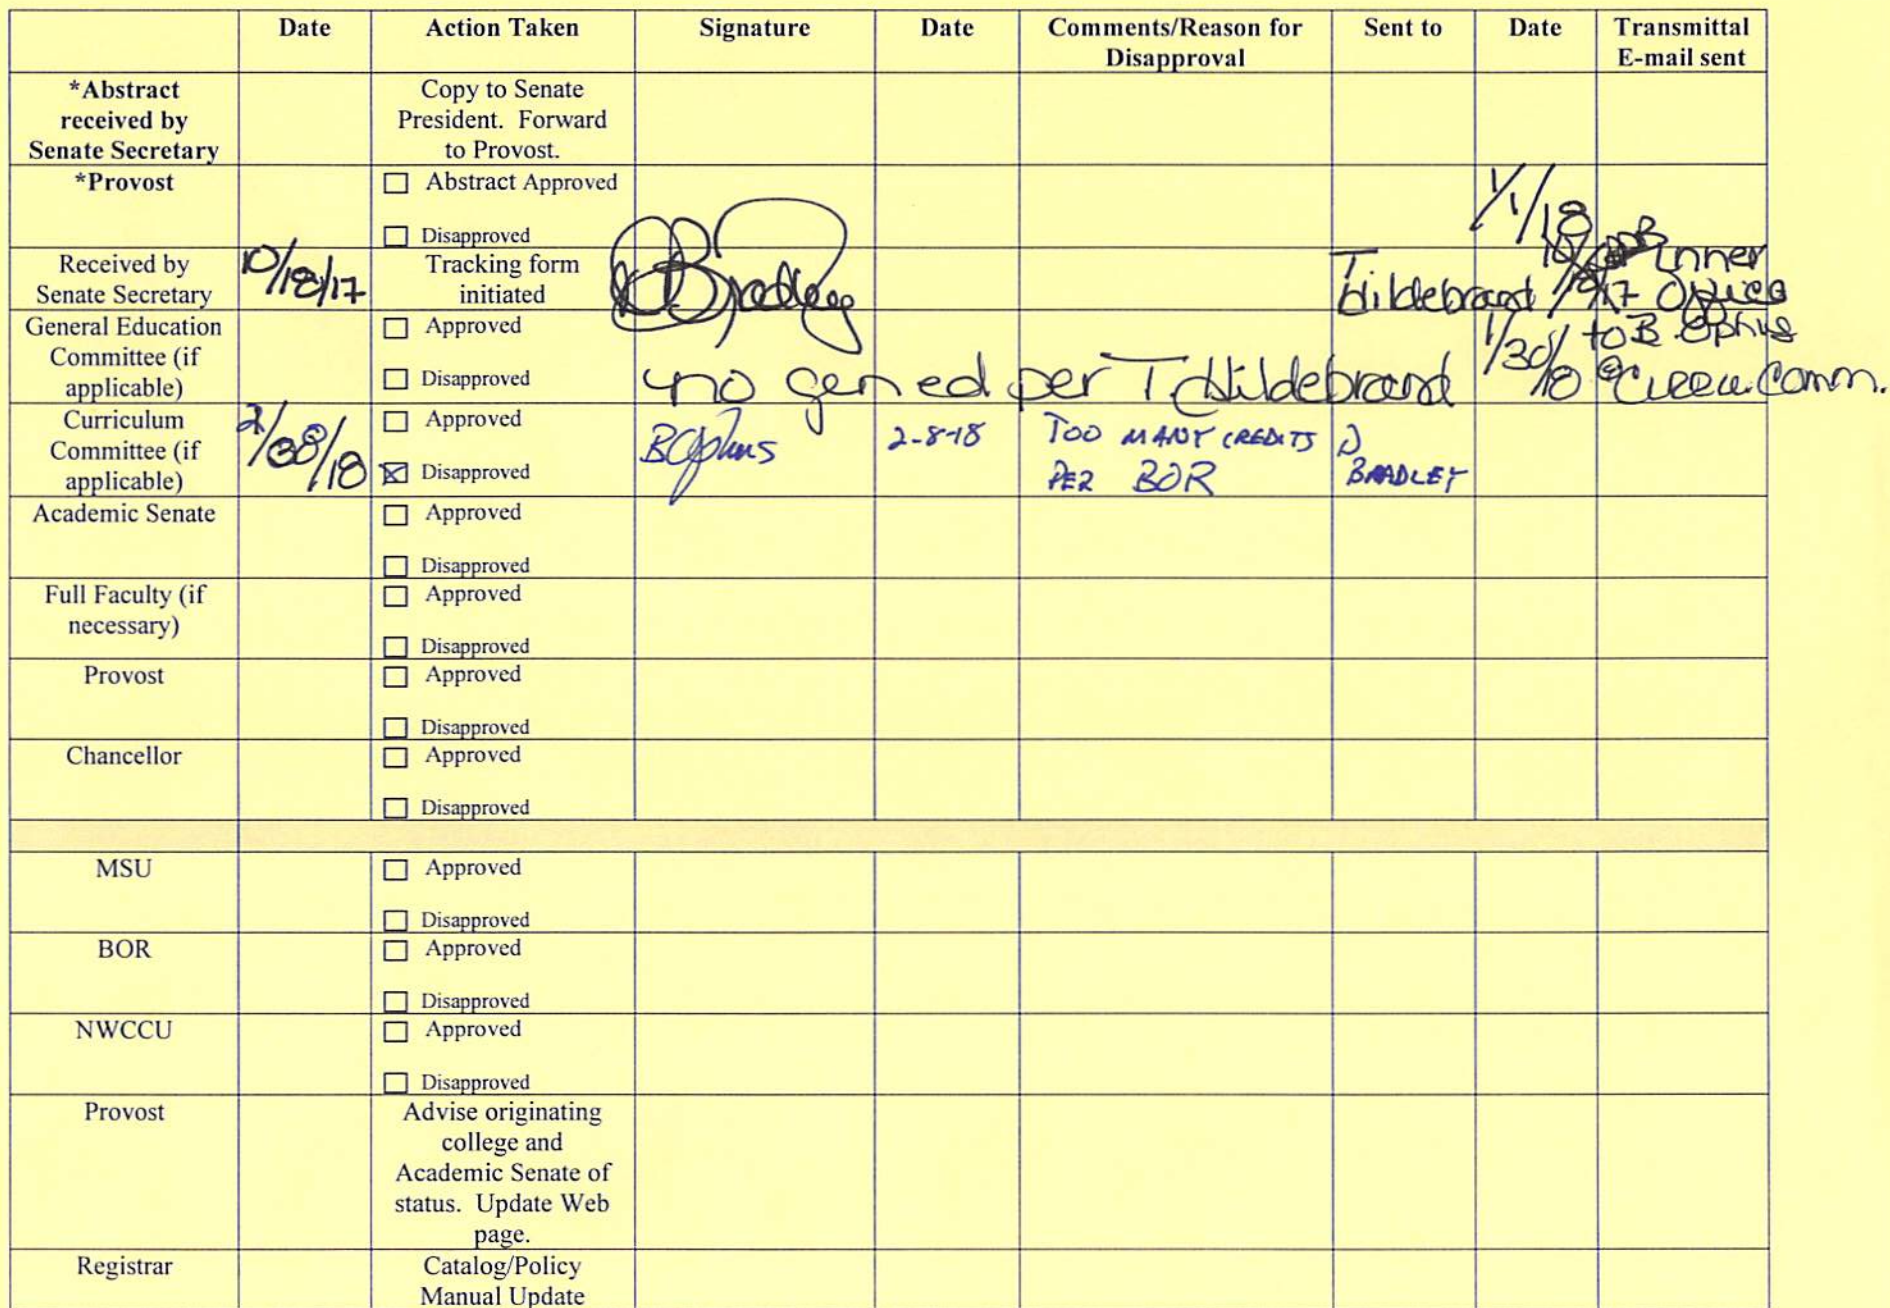 Date Action Taken Signature Date Comments/Reason for Disapproval Sent to Date Transmittal E-mail sent
*Abstract received by Senate Secretary Copy to Senate President. Forward to Provost.
*Provost ☐ Abstract Approved
☐ Disapproved
1/1/18
Received by Senate Secretary 10/18/17 Tracking form initiated Bradley T Hildebrand inner office
General Education Committee (if applicable) ☐ Approved
☐ Disapproved
no gen ed per T Hildebrand 1/30/18 to B Ophus @ Curr. Comm.
Curriculum Committee (if applicable) ☐ Approved
☒ Disapproved
BOphus 2-8-18 TOO MANY CREDITS PER BOR D BRADLEY
Academic Senate ☐ Approved
☐ Disapproved
Full Faculty (if necessary) ☐ Approved
☐ Disapproved
Provost ☐ Approved
☐ Disapproved
Chancellor ☐ Approved
☐ Disapproved
MSU ☐ Approved
☐ Disapproved
BOR ☐ Approved
☐ Disapproved
NWCCU ☐ Approved
☐ Disapproved
Provost Advise originating college and Academic Senate of status. Update Web page.
Registrar Catalog/Policy Manual Update